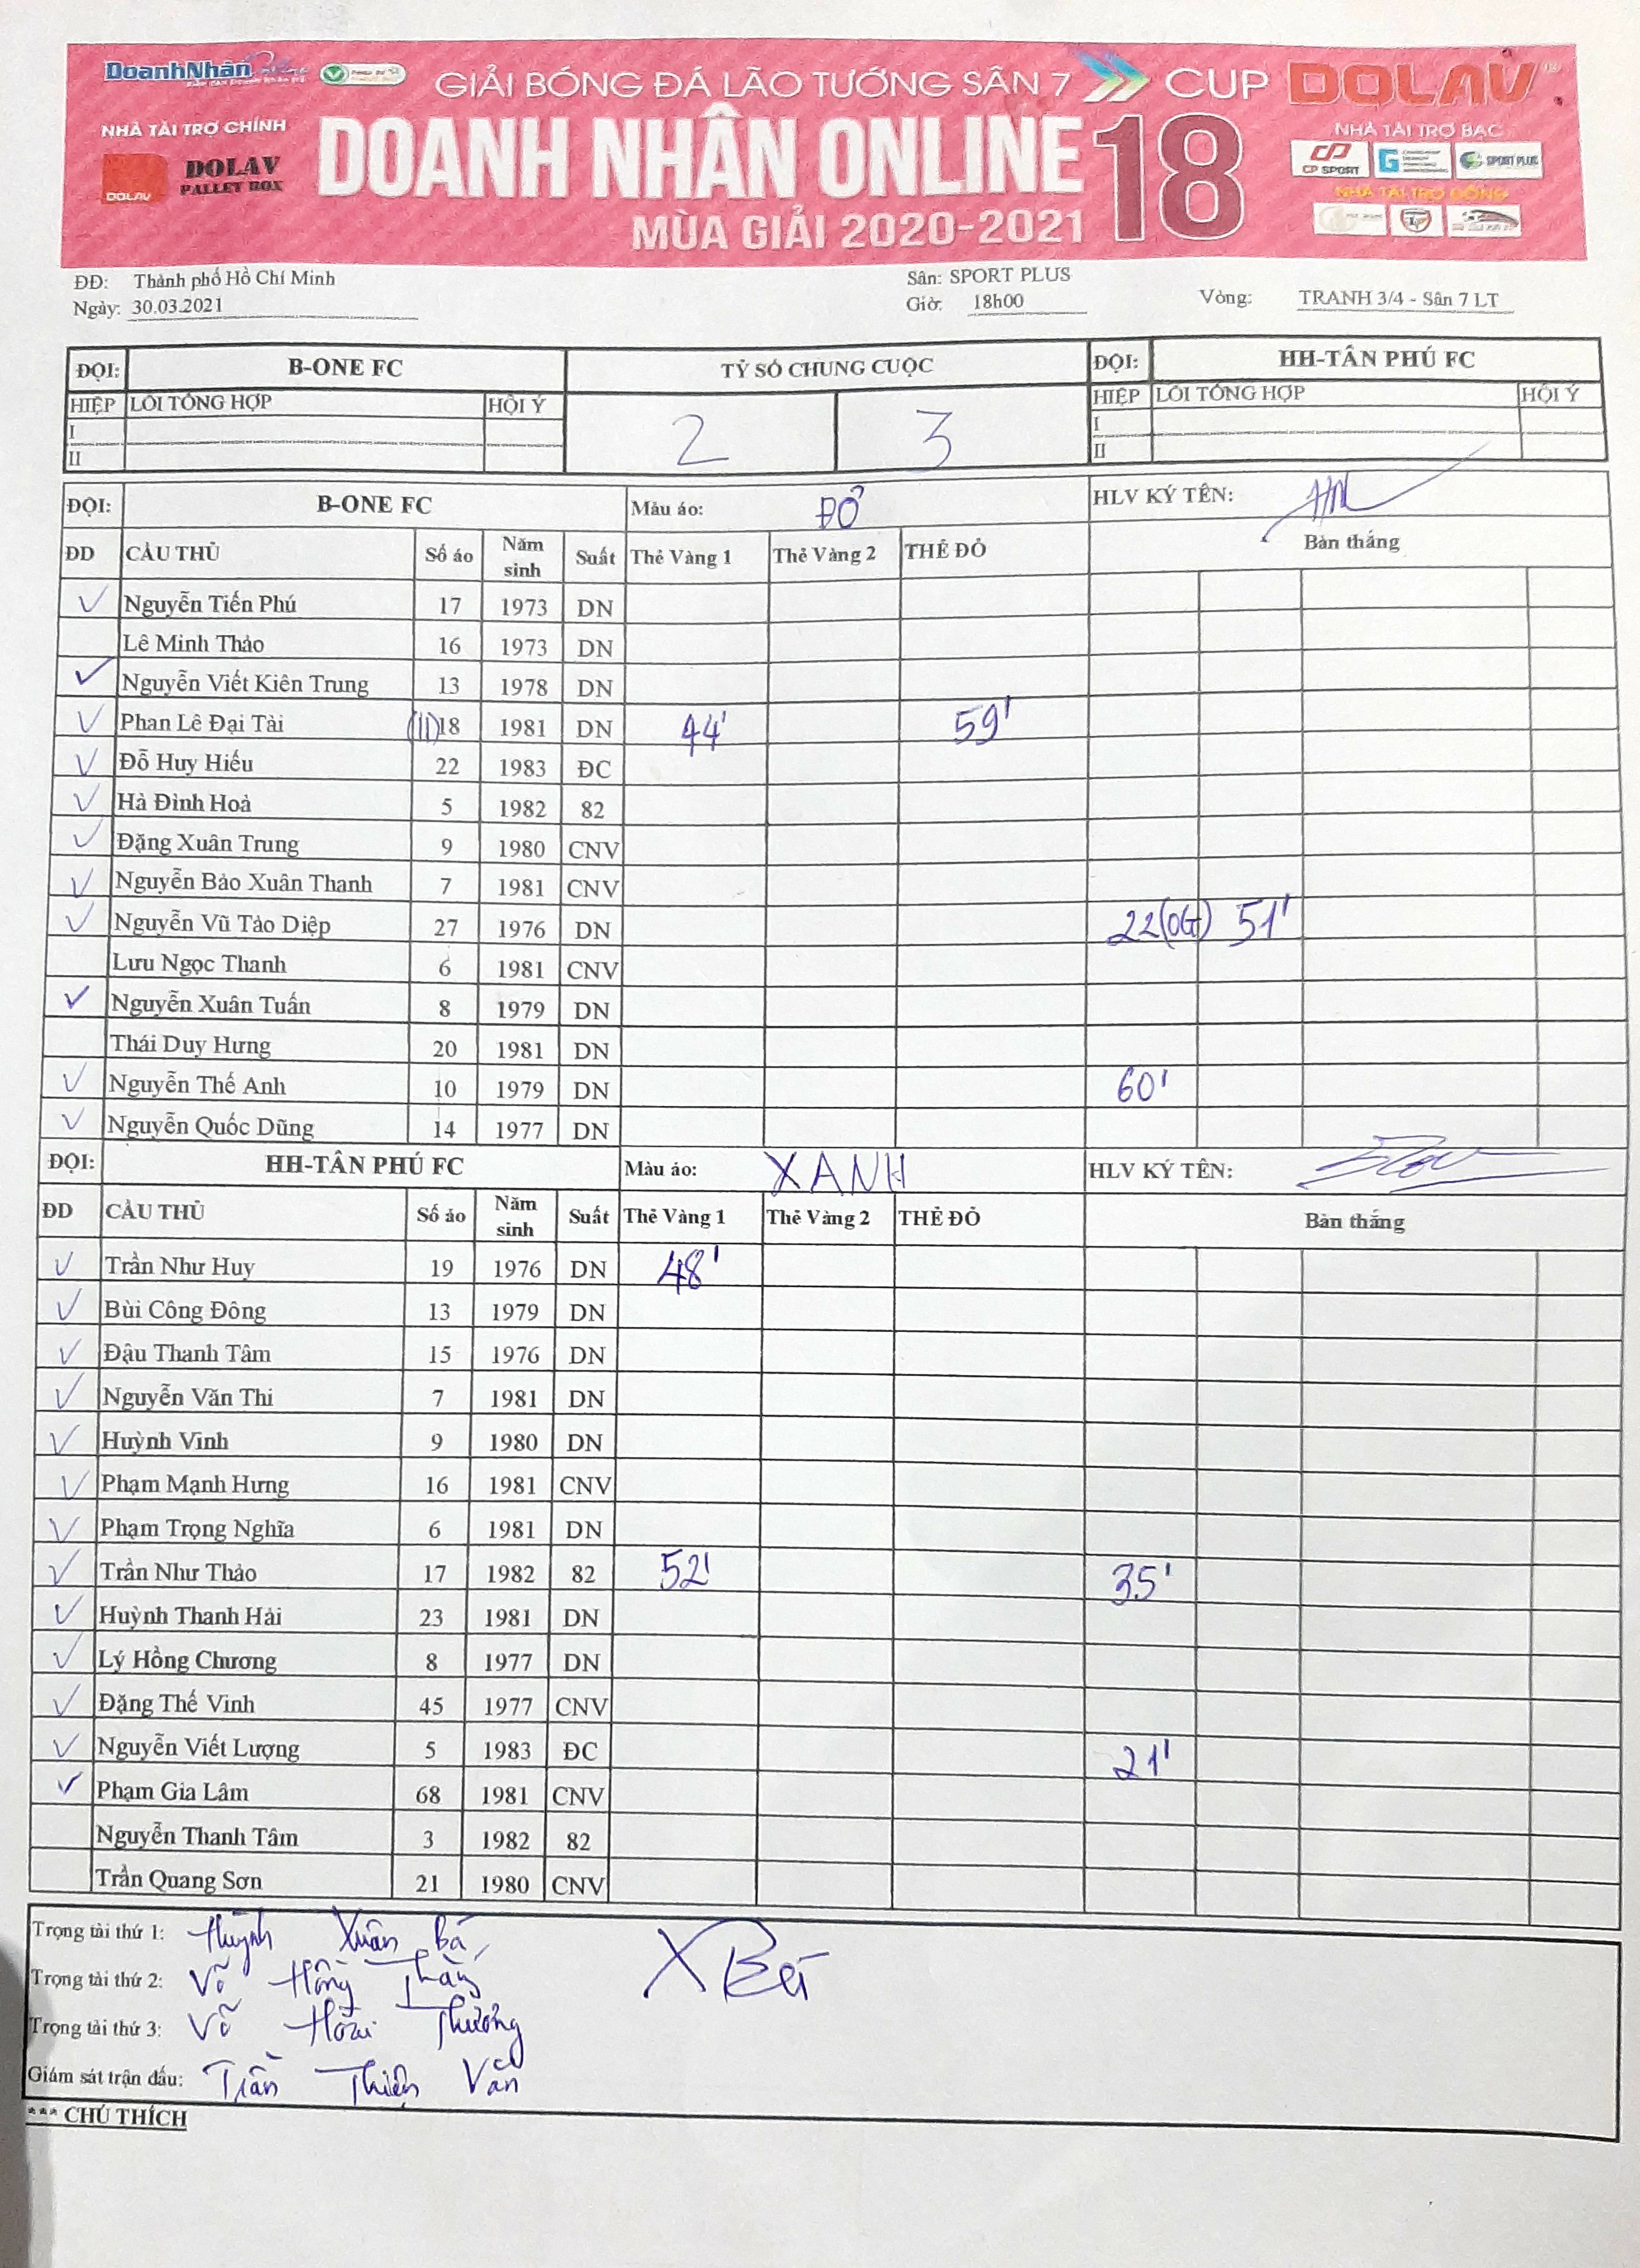 DoanhNhân
GIẢI BÓNG ĐÁ LÃO TƯỚNG SÂN 7 CUP DOLAV
NHÀ TÀI TRỢ CHÍNH
DOLAV
DOLAV
PALLET BOX
DOANH NHÂN ONLINE 18
MÙA GIẢI 2020-2021
NHÀ TÀI TRỢ BẠC
CP SPORT
SPORT PLUS
NHÀ TÀI TRỢ ĐỒNG
ĐĐ: Thành phố Hồ Chí Minh Sân: SPORT PLUS
Ngày: 30.03.2021 Giờ: 18h00 Vòng: TRANH 3/4 - Sân 7 LT
ĐỘI: B-ONE FC TỶ SỐ CHUNG CUỘC ĐỘI: HH-TÂN PHÚ FC
HIỆP LỖI TỔNG HỢP HỘI Ý 2 3 HIỆP LỖI TỔNG HỢP HỘI Ý
I I
II II
ĐỘI: B-ONE FC Màu áo: ĐỎ HLV KÝ TÊN:
ĐD CẦU THỦ Số áo Năm sinh Suất Thẻ Vàng 1 Thẻ Vàng 2 THẺ ĐỎ Bàn thắng
Nguyễn Tiến Phú 17 1973 DN
Lê Minh Thảo 16 1973 DN
Nguyễn Viết Kiên Trung 13 1978 DN
Phan Lê Đại Tài (11) 18 1981 DN 44' 59'
Đỗ Huy Hiếu 22 1983 ĐC
Hà Đình Hoà 5 1982 82
Đặng Xuân Trung 9 1980 CNV
Nguyễn Bảo Xuân Thanh 7 1981 CNV
Nguyễn Vũ Tảo Diệp 27 1976 DN 22(OG) 51'
Lưu Ngọc Thanh 6 1981 CNV
Nguyễn Xuân Tuấn 8 1979 DN
Thái Duy Hưng 20 1981 DN
Nguyễn Thế Anh 10 1979 DN 60'
Nguyễn Quốc Dũng 14 1977 DN
ĐỘI: HH-TÂN PHÚ FC Màu áo: XANH HLV KÝ TÊN:
ĐD CẦU THỦ Số áo Năm sinh Suất Thẻ Vàng 1 Thẻ Vàng 2 THẺ ĐỎ Bàn thắng
Trần Như Huy 19 1976 DN 48'
Bùi Công Đông 13 1979 DN
Đậu Thanh Tâm 15 1976 DN
Nguyễn Văn Thi 7 1981 DN
Huỳnh Vinh 9 1980 DN
Phạm Mạnh Hưng 16 1981 CNV
Phạm Trọng Nghĩa 6 1981 DN
Trần Như Thảo 17 1982 82 52' 35'
Huỳnh Thanh Hải 23 1981 DN
Lý Hồng Chương 8 1977 DN
Đặng Thế Vinh 45 1977 CNV
Nguyễn Viết Lượng 5 1983 ĐC 21'
Phạm Gia Lâm 68 1981 CNV
Nguyễn Thanh Tâm 3 1982 82
Trần Quang Sơn 21 1980 CNV
Trọng tài thứ 1: Huỳnh Xuân Bá XBá
Trọng tài thứ 2: Võ Hồng Thắng
Trọng tài thứ 3: Võ Hoài Thương
Giám sát trận đấu: Trần Thiện Văn
*** CHÚ THÍCH